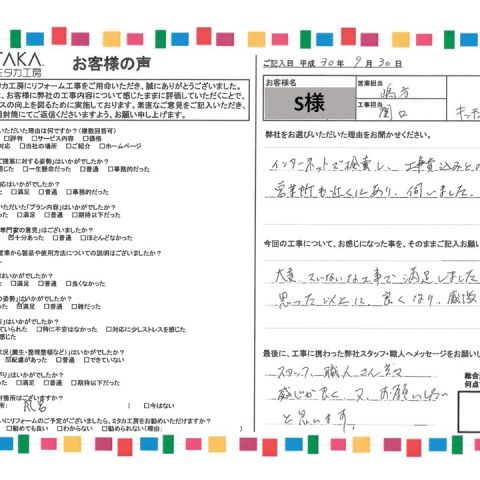 TAKA.
ミタカ工房
お客様の声
タカ工房にリフォーム工事をご用命いただき、誠にありがとうございました。
は、お客様に弊社の工事内容について感じたままに評価していただくことで、
スの向上を図るために実施しております。率直なご意見をご記入いただき、
封筒にてご返信くださいますよう、お願い申し上げます。
いただいた理由は何ですか?(複数回答可)
□評判 □サービス内容 □価格
対応 □当社の場所 □ご紹介 □ホームページ
ご提案に対する姿勢」はいかがでしたか?
感じた □一生懸命だった □普通 □事務的だった
応はいかがでしたか?
った □満足 □普通 □事務的だった
いただいた「プラン内容」はいかがでしたか?
った □満足 □普通 □期待以下だった
専門家の意見」はございましたか?
十分あった □普通 □ほとんどなかった
営業から製品や使用方法についての説明はございましたか?
はいかがでしたか?
った □満足 □普通 □良くなかった
の姿勢」はいかがでしたか?
□満足 □普通 □雑だった
」はいかがでしたか?
ていられた □特に不安はなかった □対応に少しストレスを感じた
に感じた
状況(養生・整理整頓など)」はいかがでしたか?
配慮があった □普通 □できていない
がり」はいかがでしたか?
った □満足 □普通 □期待以下だった
対箇所はございますか?
所: 風呂 ) □今はない
いにリフォームのご予定がございましたら、ミタカ工房をお勧めいただけますか?
□勧めても良い □わからない □勧められない(理由:
ご記入日 平成 30年 9月 30日
お客様名
S様
営業担当
工事担当
関口
弊社をお選びいただいた理由をお聞かせください。
インターネットで検索し、工事費込みとの
営業所も近くにあり、伺いました。
今回の工事について、お感じになった事を、そのままご記入お願い
大変、ていねいな工事で満足しました
思った以上に、良くなり、感激
最後に、工事に携わった弊社スタッフ・職人へメッセージをお願いし
スタッフ、職人さん、
感じが良く、又、お願いしたい
と思います。
総合
何点